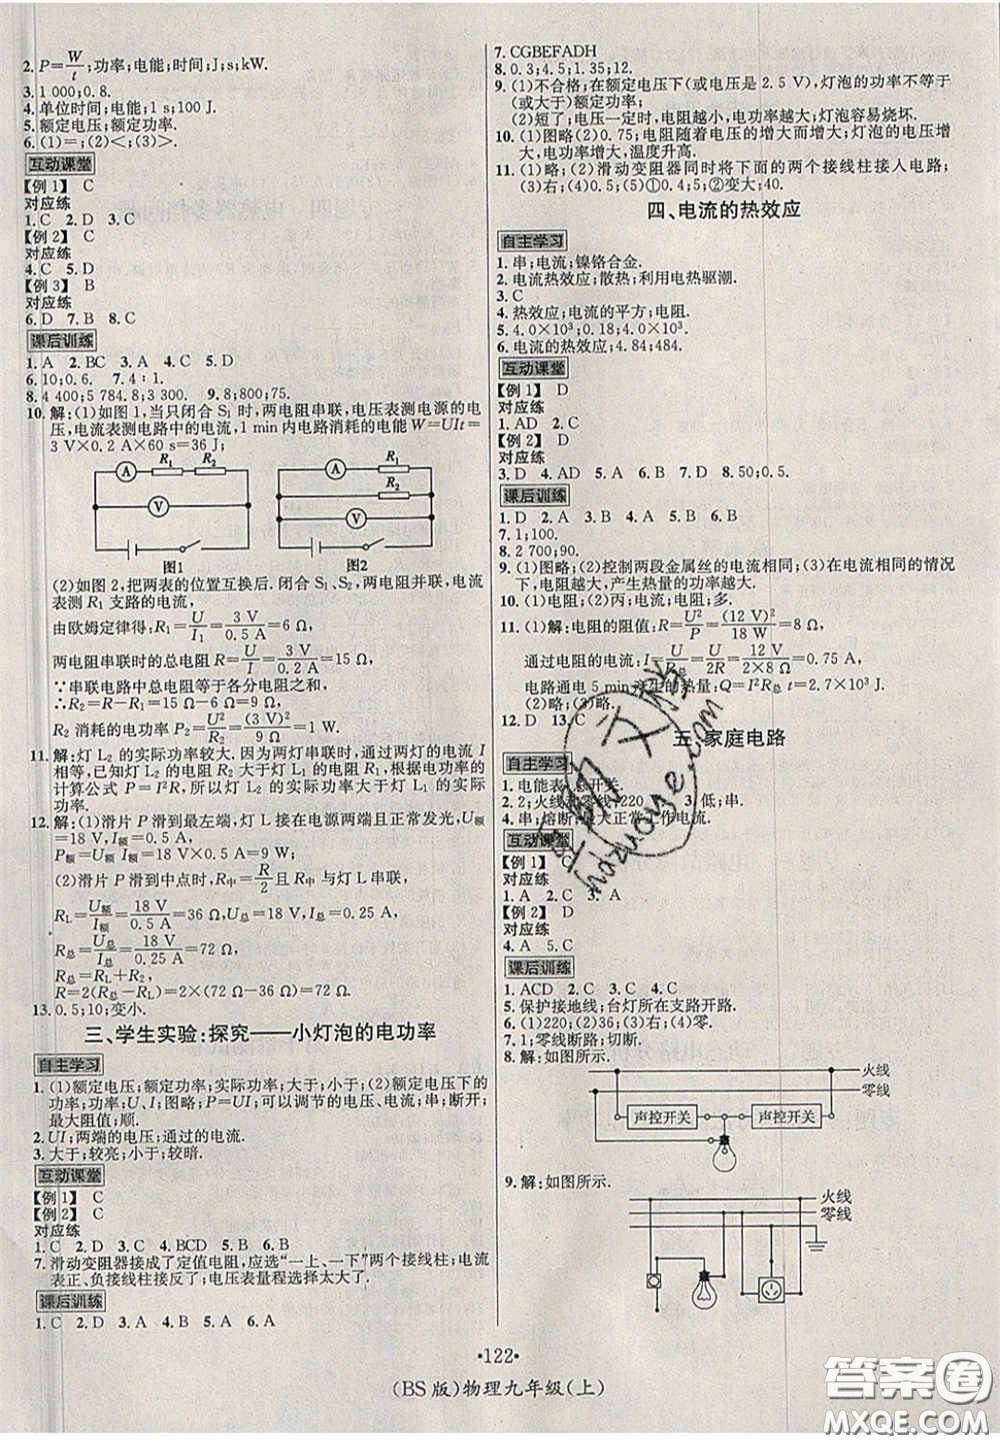 2. P=W/t;功率;电能;时间;J;s;kW.
3. 1 000;0.8.
4. 单位时间;电能;1 s;100 J.
5. 额定电压;额定功率.
6. (1)=;(2)<;(3)>.
互动课堂
【例1】 C
对应练
1. C 2. D 3. C
【例2】 C
对应练
4. C 5. D
【例3】 B
对应练
6. D 7. B 8. C
课后训练
1. A 2. BC 3. A 4. C 5. D
6. 10;0.6. 7. 4∶1.
8. 4 400;5 784.8;3 300. 9. 8;800;75.
10. 解:(1)如图1,当只闭合 S₁ 时,两电阻串联,电压表测电源的电
压,电流表测电路中的电流,1 min内电路消耗的电能 W=UIt=
3 V×0.2 A×60 s=36 J;
A R₁ R₂ V
图1
A R₁ R₂ V
图2
(2)如图2,把两表的位置互换后.闭合 S₁、S₂,两电阻并联,电流
表测 R₁ 支路的电流,
由欧姆定律得:R₁=U/I₁=3 V/0.5 A=6 Ω,
两电阻串联时的总电阻 R=U/I=3 V/0.2 A=15 Ω,
∵串联电路中总电阻等于各分电阻之和,
∴R₂=R-R₁=15 Ω-6 Ω=9 Ω,
R₂ 消耗的电功率 P=U²/R₂=(3 V)²/9 Ω=1 W.
11. 解:灯 L₂ 的实际功率较大.因为两灯串联时,通过两灯的电流 I
相等,已知灯 L₂ 的电阻 R₂ 大于灯 L₁ 的电阻 R₁,根据电功率的
计算公式 P=I²R,所以灯 L₂ 的实际功率大于灯 L₁ 的实际
功率.
12. 解:(1)滑片 P 滑到最左端,灯 L 接在电源两端且正常发光,U额
=18 V,I额=0.5 A,
P额=U额I额=18 V×0.5 A=9 W;
(2)滑片 P 滑到中点时,R中=R/2且 R中与灯 L 串联,
RL=U额/I额=18 V/0.5 A=36 Ω,U总=18 V,I总=0.25 A,
R总=U总/I总=18 V/0.25 A=72 Ω,
R总=RL+R₂,
R=2(R总-RL)=2×(72 Ω-36 Ω)=72 Ω.
13. 0.5;10;变小.
三、学生实验:探究——小灯泡的电功率
自主学习
1. (1)额定电压;额定功率;实际功率;大于;小于;(2)额定电压下的
功率;功率;U、I;图略;P=UI;可以调节的电压、电流;串;断开;
最大阻值;顺.
2. UI;两端的电压;通过的电流.
3. 大于;较亮;小于;较暗.
互动课堂
【例1】 C
【例2】 C
对应练
1. C 2. D 3. C 4. BCD 5. B 6. B
7. 滑动变阻器接成了定值电阻,应选“一上、一下”两个接线柱;电流
表正、负接线柱接反了;电压表量程选择太大了.
课后训练
1. C 2. D 3. A 4. B 5. A 6. A
7. CGBEFADH
8. 0.3;4.5;1.35;12.
9. (1)不合格;在额定电压下(或电压是2.5 V),灯泡的功率不等于
(或大于)额定功率;
(2)短了;电压一定时,电阻越小,电功率越大;灯泡容易烧坏.
10. (1)图略(2)0.75;电阻随着电压的增大而增大;灯泡的电压增
大,电功率增大,温度升高.
11. (1)略;(2)滑动变阻器同时将下面的两个接线柱接入电路;
(3)右;(4)0.5;(5)①0.4;5;②变大;40.
四、电流的热效应
自主学习
1. 串;电流;镍铬合金.
2. 电流热效应;散热;利用电热驱潮.
3. C
4. 热效应;电流的平方;电阻.
5. 4.0×10³;0.18;4.0×10³.
6. 电流的热效应;4.84;484.
互动课堂
【例1】 D
对应练
1. AD 2. C
【例2】 D
对应练
3. D 4. AD 5. A 6. B 7. D 8. 50;0.5.
课后训练
1. D 2. A 3. C 4. A 5. B 6. B
7. 1;100.
8. 2 700;90.
9. (1)图略;(2)控制两段金属丝的电流相同;(3)在电流相同的情况
下,电阻越大,产生热量的功率越大.
10. (1)电阻;(2)丙;电流;电阻;多.
11. (1)解:电阻的阻值:R=U²/P=(12 V)²/18 W=8 Ω,
通过电阻的电流:I=U/R总=U/2R=12 V/2×8 Ω=0.75 A,
电路通电5 min产生的热量:Q=I²R总t=2.7×10³ J.
(2)略;(3)略.
12. D 13. C
五、家庭电路
自主学习
1. 电能表;总开关.
2. 2;火线和零线;220 3. 低;串.
4. 串;熔断;最大正常工作电流.
互动课堂
【例1】 C
对应练
1. A 2. C 3. A
【例2】 D
对应练
4. A 5. C
课后训练
1. ACD 2. C 3. C 4. C
5. 保护接地线;台灯所在支路开路.
6. (1)220;(2)36;(3)右;(4)零.
7. 1;零线断路;切断.
8. 解:如图所示.
火线
零线
声控开关 声控开关
9. 解:如图所示.
火线
零线
·122·
(BS版)物理九年级(上)
答案圈
MXQE.COM
hdzuoye.com